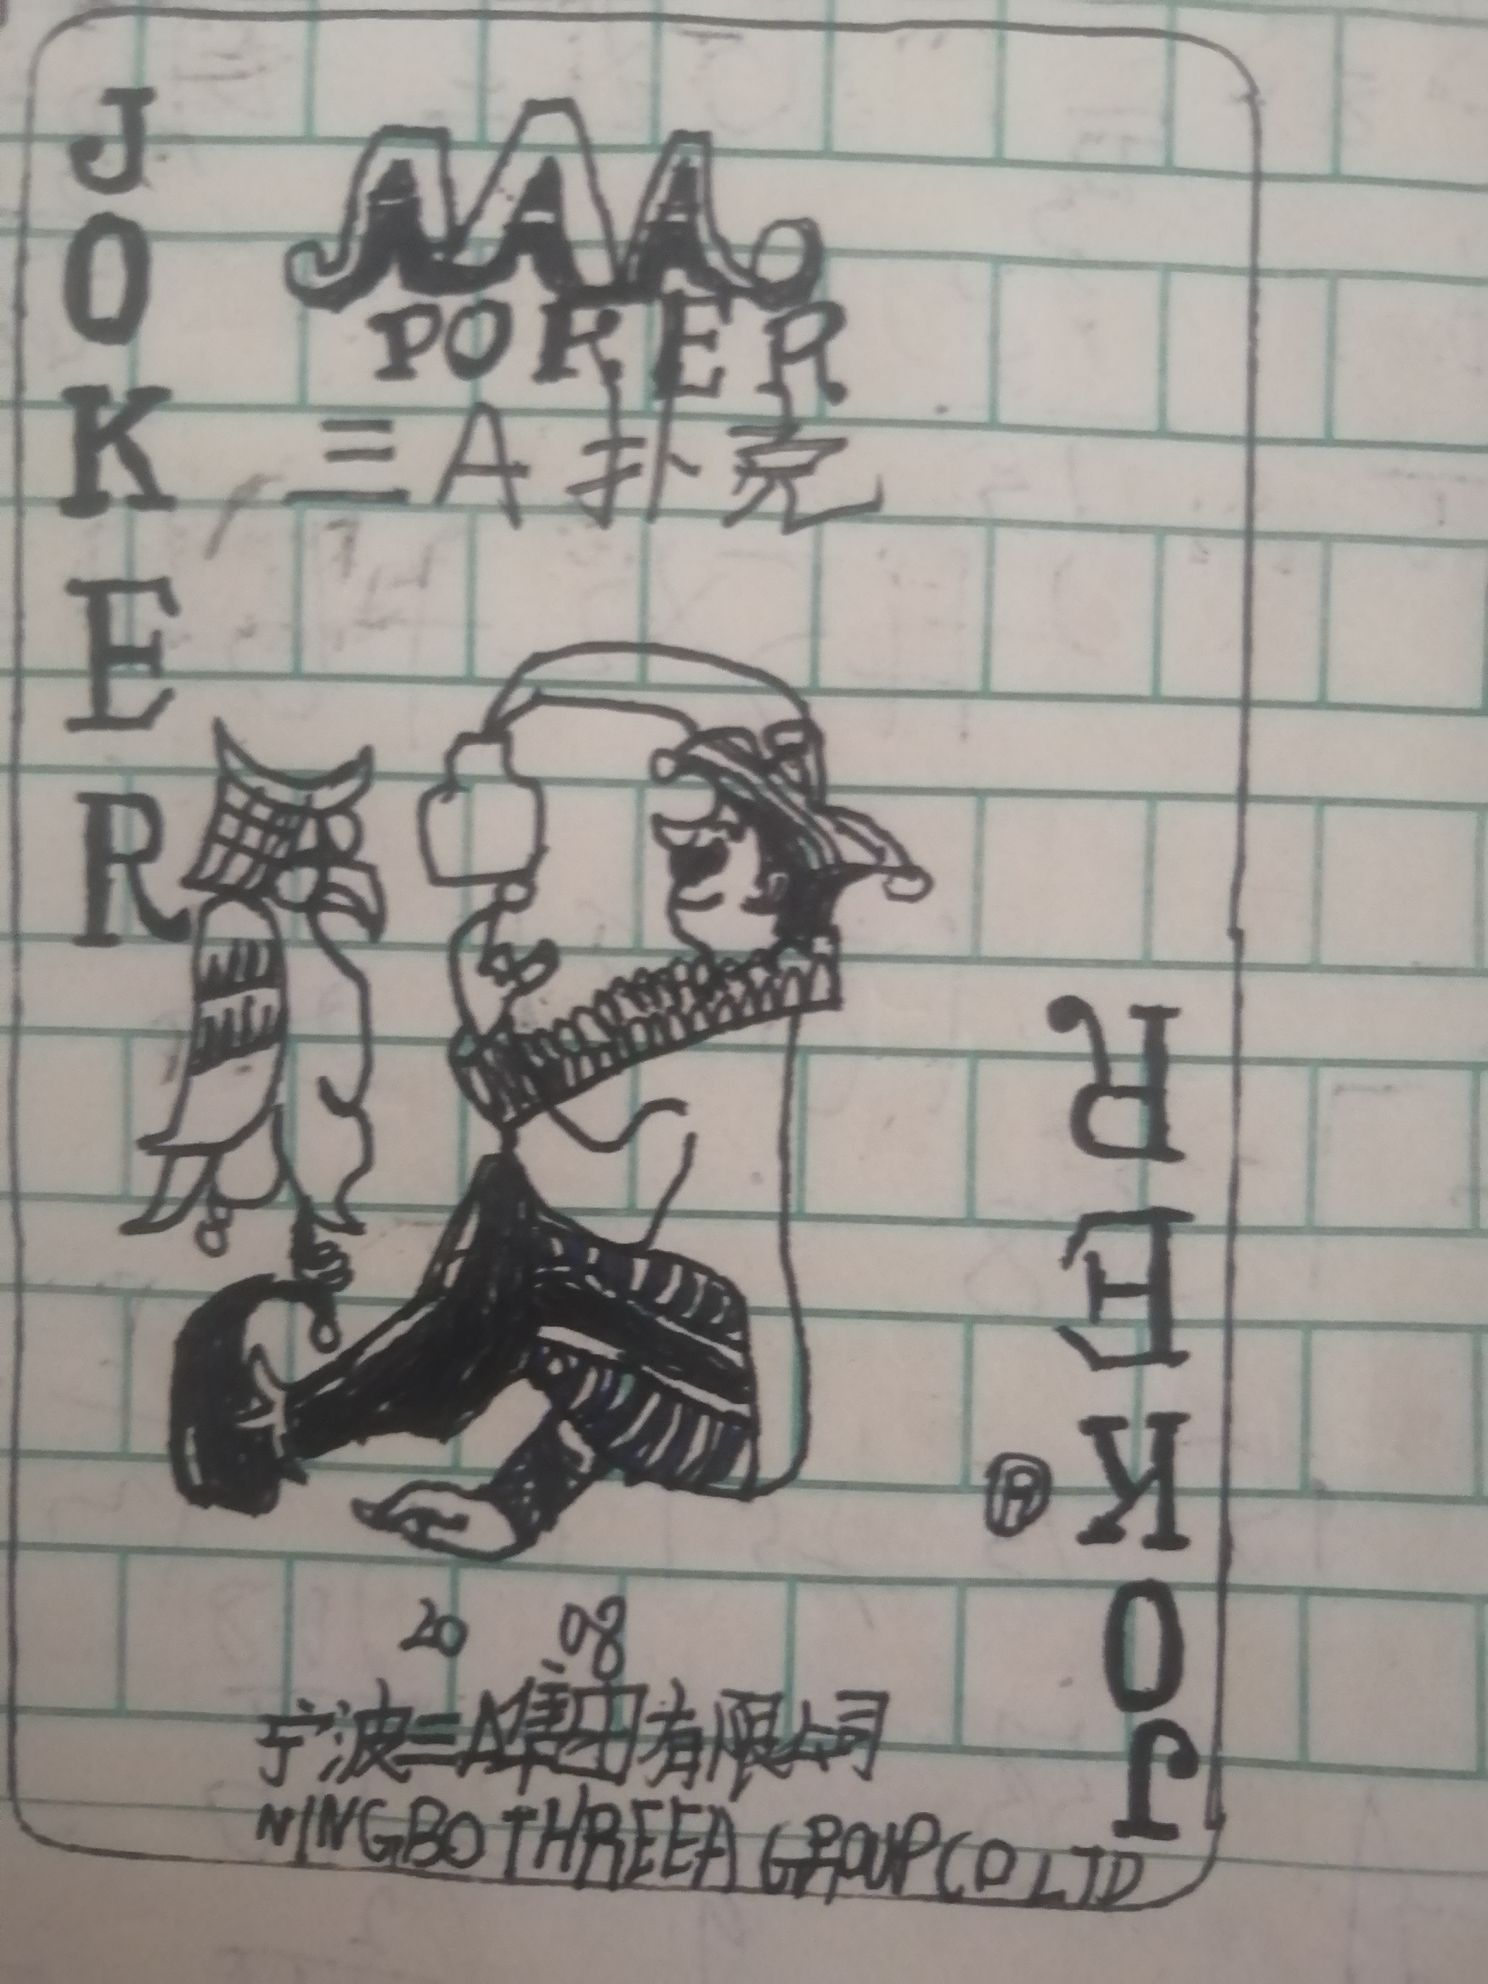 JOKER
AAA
POKER
三A扑克
JOKER
®
20 08
宁波三A集团有限公司
NINGBO THREEA GROUP CO LTD